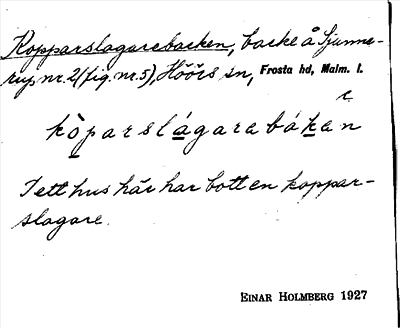 Kopparslagarebacken, backe å Sjunne-
rup nr. 2 (fig. nr. 5), Höörs sn, Frosta hd, Malm. l.
kòparslágarabákan
I ett hus här har bott en koppar-
slagare.
EINAR HOLMBERG 1927